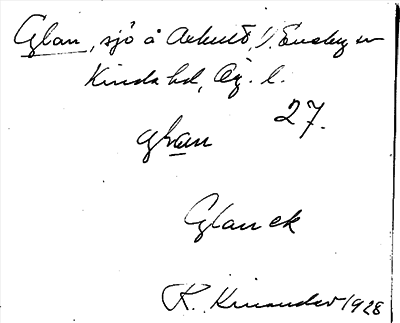 Glan, sjö å Aekult, V. Eneby sn
Kinda hd, Ög. l.
27.
glan
Glan ek
R. Kinander 1928